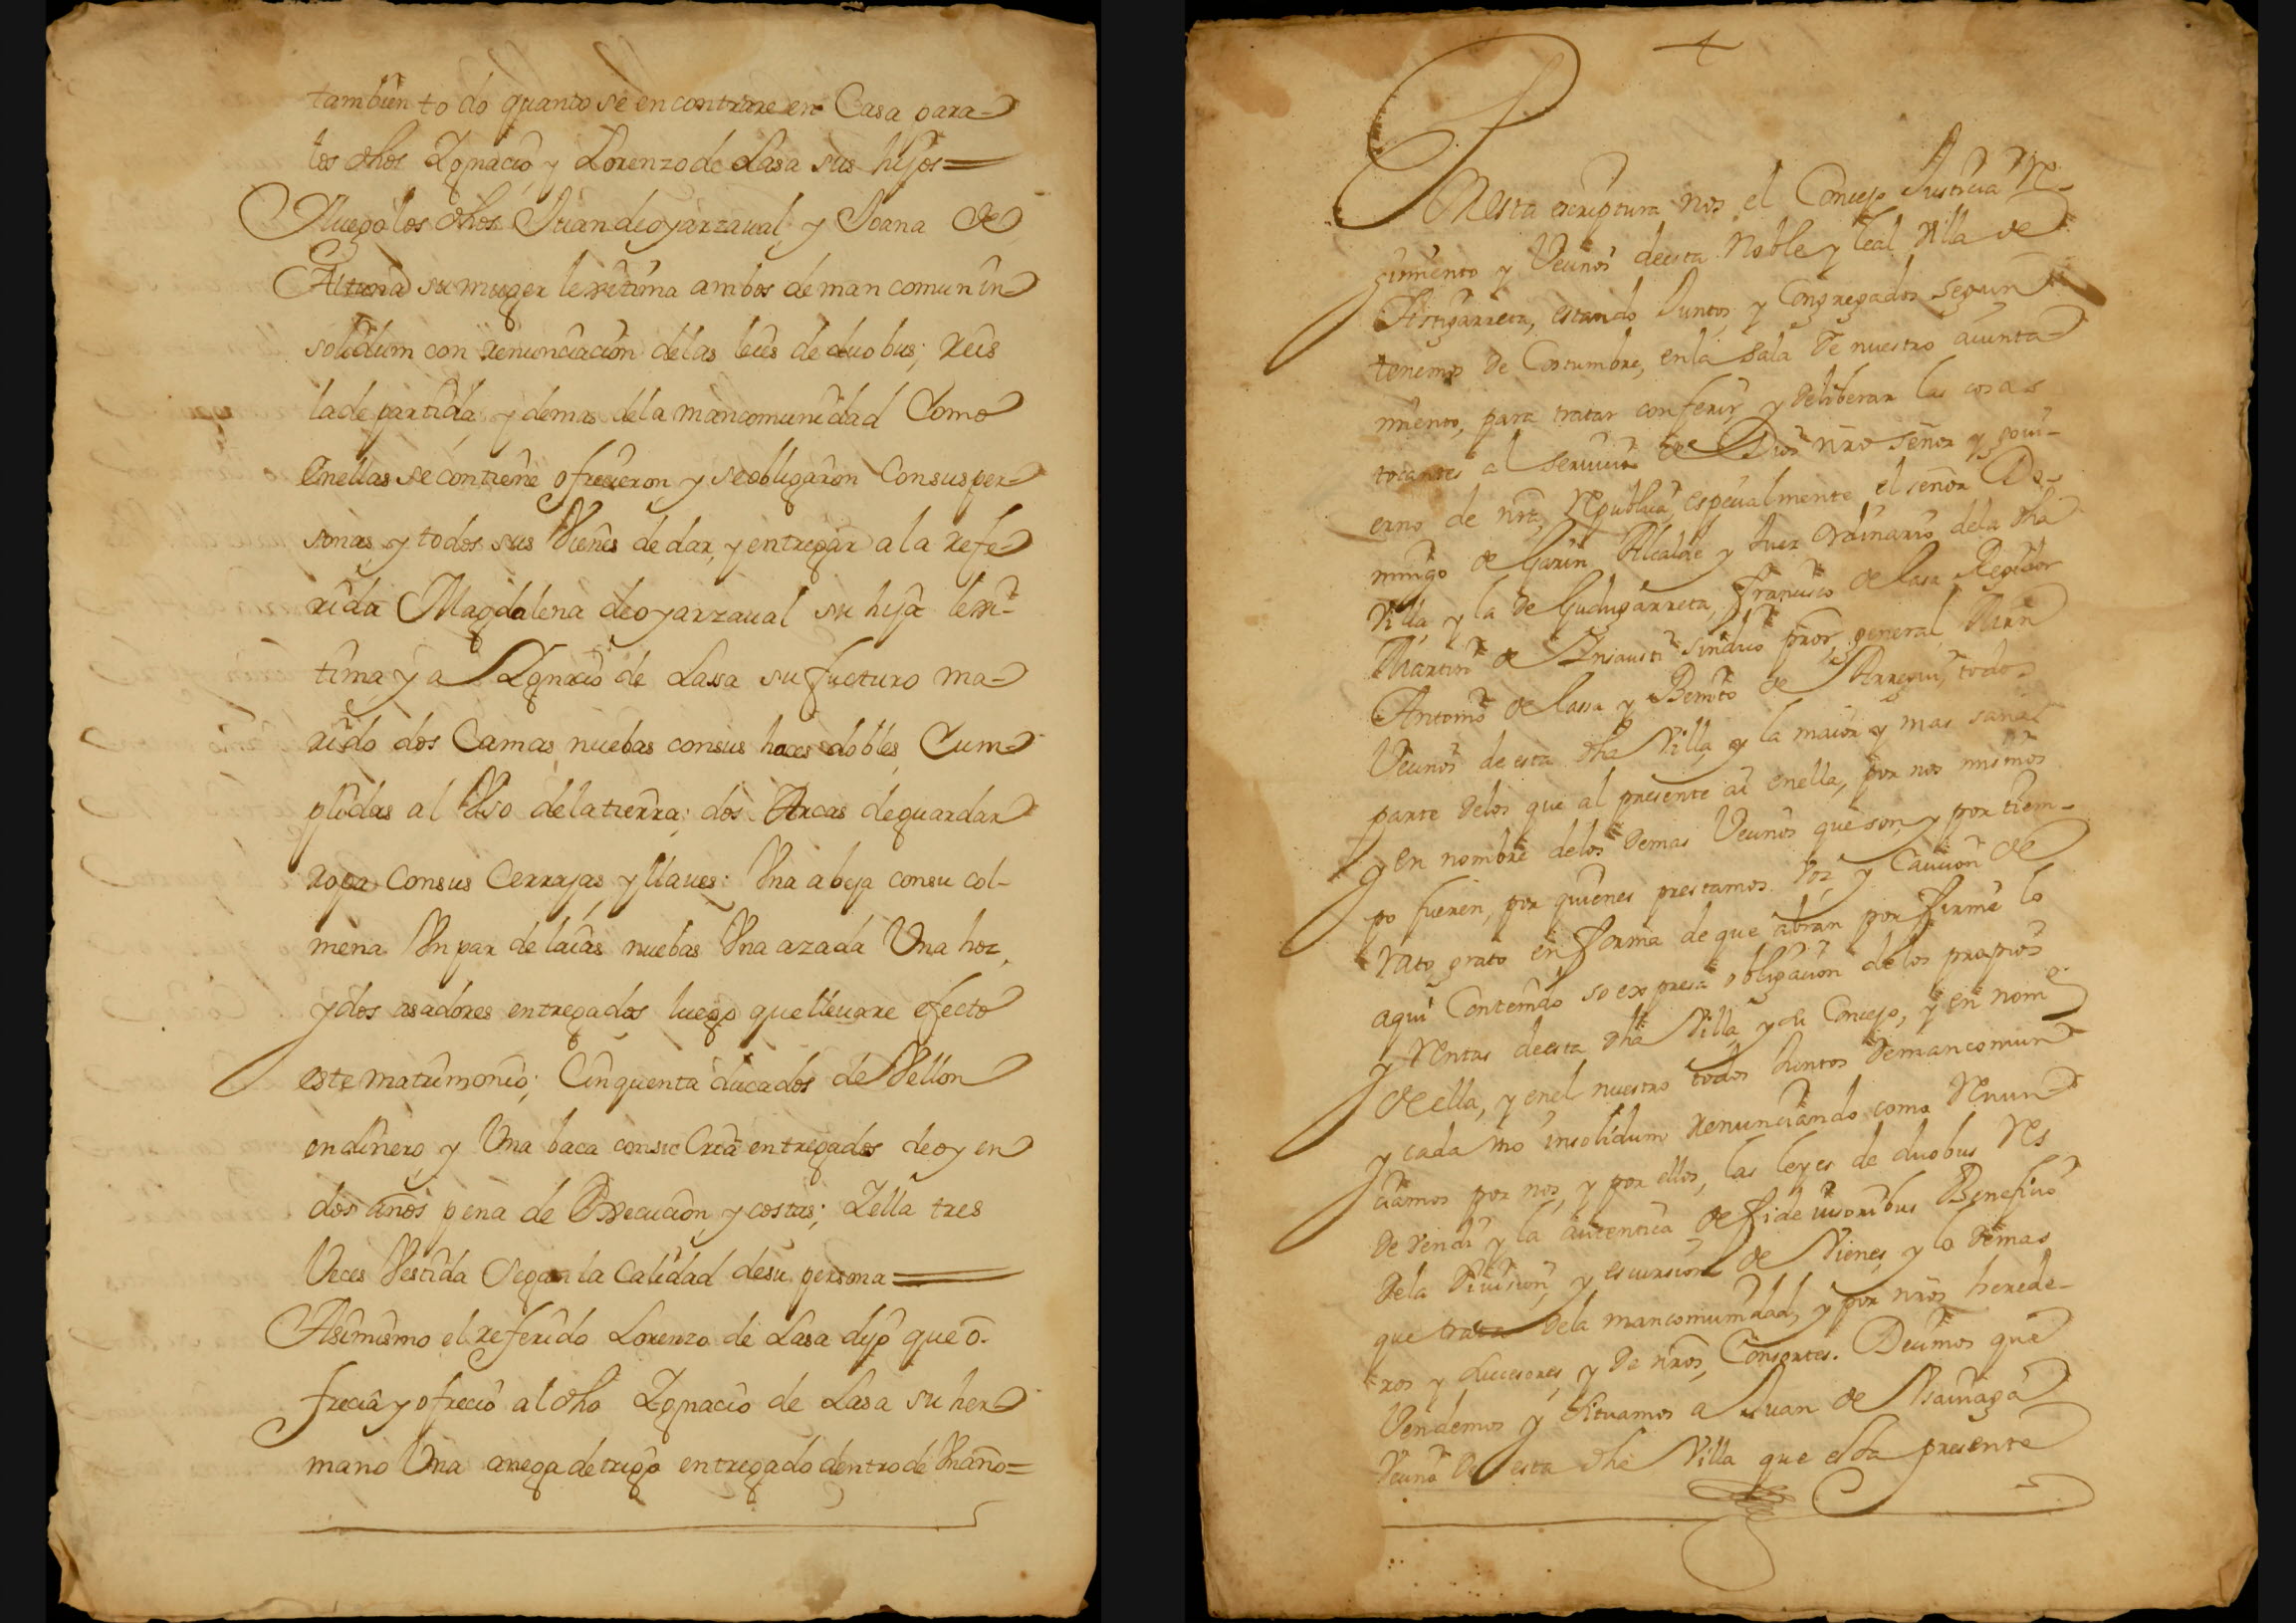 tambien todo quanto se encontrare en Casa para
los dhos Ygnacio y Lorenzo de Lasa sus hijos =
Y luego los dhos Juan de oyarzaual y Joana de
Altuna su muger lexitima ambos de man comun in
solidum con renunciacion de las leies de duobus; reis
la de partida y demas de la mancomunidad Como
en ellas se contiene ofrecieron y se obligaron Con sus per-
sonas y todos sus Vienes de dar, y entregar a la refe-
rida Magdalena de oyarzaual su hija lexi-
tima y a Ygnacio de Lassa su fucturo ma-
rido dos Camas nuebas con sus haces dobles, Cum-
plidas al Vso de la tierra; dos Arcas de guardar
ropa Con sus Cerrajas y llaues: Vna abeja con su col-
mena Vn par de laias nuebas Vna azada Una hoz,
y dos asadores entregados luego que lleuare efecto
este matrimonio; Cinquenta ducados de Vellon
en dinero, y Una baca con su Cria entregados de oy en
dos años pena de Execucion y costas; Y ella tres
Veces Vestida Segun la Calidad de su persona =
Asimismo el referido Lorenzo de Lasa dijo que o-
frecia y ofrecio al dho Ygnacio de Lasa su her-
mano Una anega de trigo entregado dentro de Vn año =
En esta escriptura nos el Concejo Justicia Re-
gimiento y Vecinos de esta Noble y Leal Villa de
Astigarreta, estando Juntos, y Congregados segun
tenemos de Costumbre, en la sala de nuestro aiunta-
miento, para tratar conferir, y deliberar las cosas
tocantes al seruicio de Dios nro señor y goui-
erno de nra Republica, especialmente el señor Do-
mingo de Garin Alcalde y Juez ordinario de la dha
Villa, y la de Gudugarreta, Francisco de Lasa Regidor
Martin de Insausti sindico pror general, Juan
Antonio de Lassa y Benito de Arregui, todos
Vecinos de esta dha Villa, y la maior y mas sana
parte de los que al presente ai en ella, por nos mismos
y en nombre de los demas Vecinos que son, y por tiem-
po fueren, por quienes prestamos Voz, y Caucion de
rato grato en forma de que abran por firme lo
aqui Contenido so expresa obligacion de los propios
y rentas de esta dha Villa y su Concejo, y en nome
de ella, y en el nuestro todos Juntos de mancomun
y cada vno insolidum renunciando como renun-
ciamos por nos, y por ellos, las leyes de duobus res
de vendi y la autentica de fide iusoribus Beneficio
de la Diuision, y escursion de Vienes, y lo demas
que trata de la mancomunidad, y por nros herede-
ros y Sucesores, y de nros Consortes. Decimos que
Vendemos y Situamos a Juan de
Vecino de esta dha Villa que esta presente